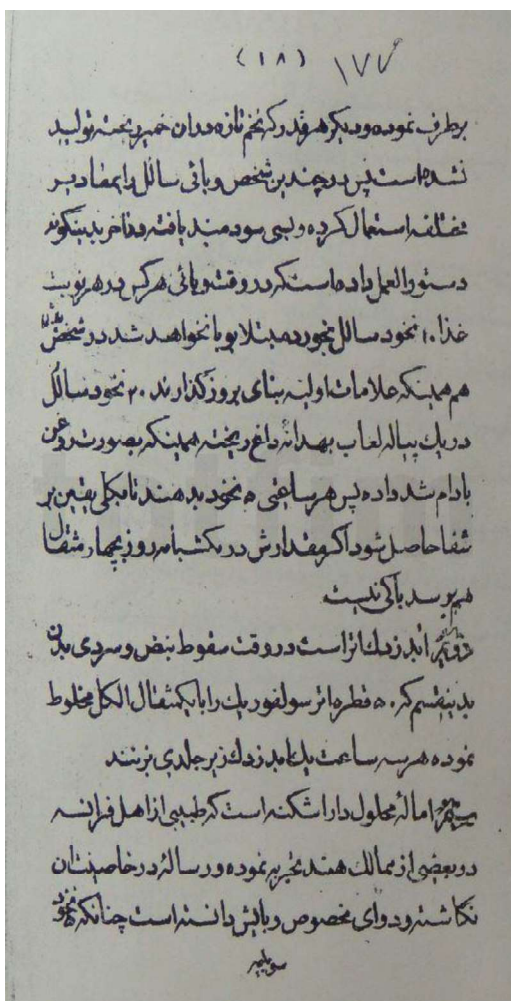 (۱۸) ۱۷۷
برطرف نموده و دیگر هر قدر که تخم تازه در ان خمیر ریخته تولید
نشده است پس در چندین شخص وبائی سالل را بمقادیر
مختلفه استعمال کرده و بسی سودمند یافته و تا خر بدینگونه
دستور العمل داده است که در وقت وبائی هر کس در هر نوبت
غذا ۱۰ نخود سالل بخورد مبتلا بوبا نخواهد شد در شخص
هم همینکه علامات اولیه بنای بروز گذارند ۲۰ نخود سالل
در یک پیاله لعاب بهدانه داغ ریخته همینکه بصورت روغن
بادام شد داده پس هر ساعتی ۵ نخود بدهند تا بکلی یقین بر
شفا حاصل شود اگر مقدارش در یکشبانه روز بچهار مثقال
هم برسد باکی نیست
دویم ابدزدک اتر است در وقت سقوط نبض و سردی بدن
بدینقسم که ۵۰ قطره اتر سولفوریک را با یکمثقال الکل مخلوط
نموده هر سه ساعت یک ابدزدک زیر جلدی بزنند
سیم امالهٔ محلول دار اشکنه است که طبیبی از اهل فرانسه
در بعضی از ممالک هند تجربه نموده و رسالهٔ در خاصیت ان
نگاشته و دوای مخصوص وبایش دانسته است چنانکه ۵ نخود